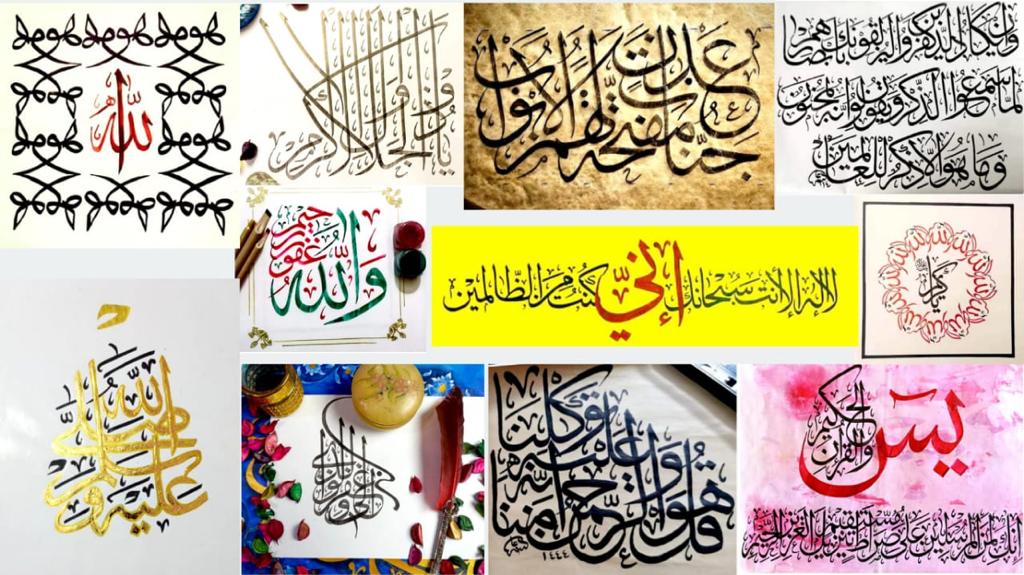 الله
يا ذا الجلال والاكرام
جنات عدن مفتحة لهم الابواب
وان يكاد الذين كفروا ليزلقونك بابصارهم
لما سمعوا الذكر ويقولون انه لمجنون
وما هو الا ذكر للعالمين
والله غفور رحيم
لا اله الا انت سبحانك إنيّ كنت من الظالمين
صلى الله عليه وسلم
قل هو الرحمن امنا به وعليه توكلنا
١٤٤٤
يس والقران الحكيم
انك لمن المرسلين على صراط مستقيم تنزيل العزيز الرحيم